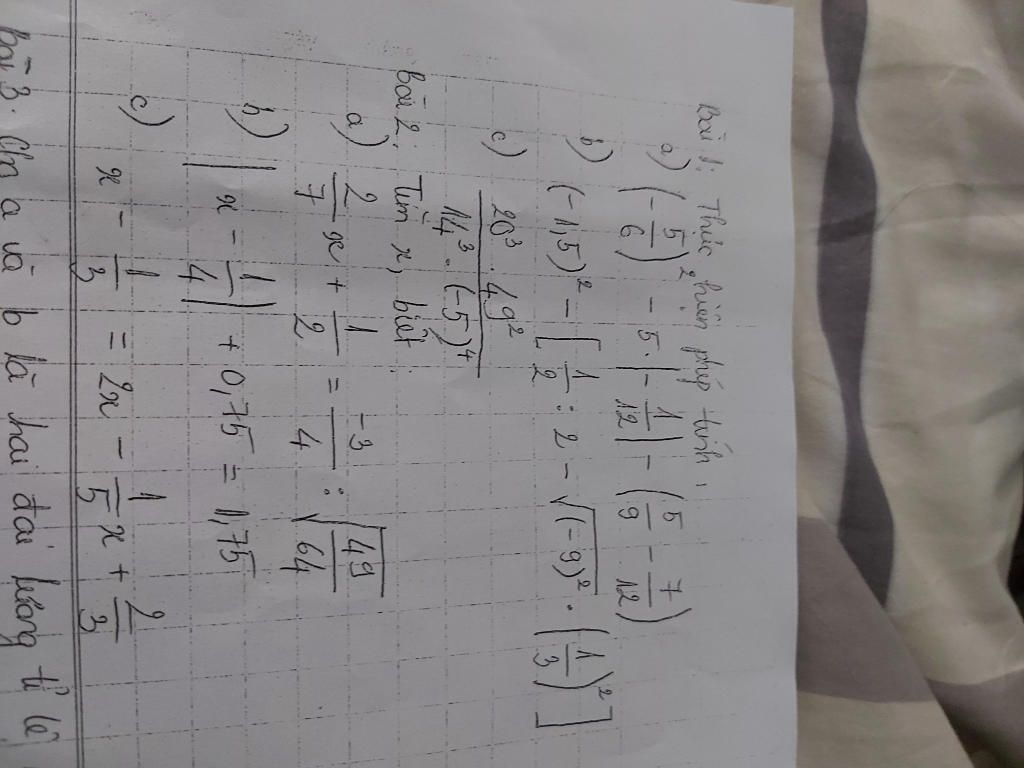 Bài 1: Thực hiện phép tính,
a) (-5/6)² - 5.|-1/12| - (5/9 - 7/12)
b) (-1,5)² - [1/2 : 2 - √(-9)² . (1/3)²]
c) 20³ . 49² / 14³ . (-5)⁴
Bài 2. Tìm x, biết
a) 2/7 x + 1/2 = -3/4 : √49/64
b) |x - 1/4| + 0,75 = 1,75
c) x - 1/3 = 2x - 1/5 x + 2/3
bài 3. Cho a và b là hai đại lượng tỉ lệ